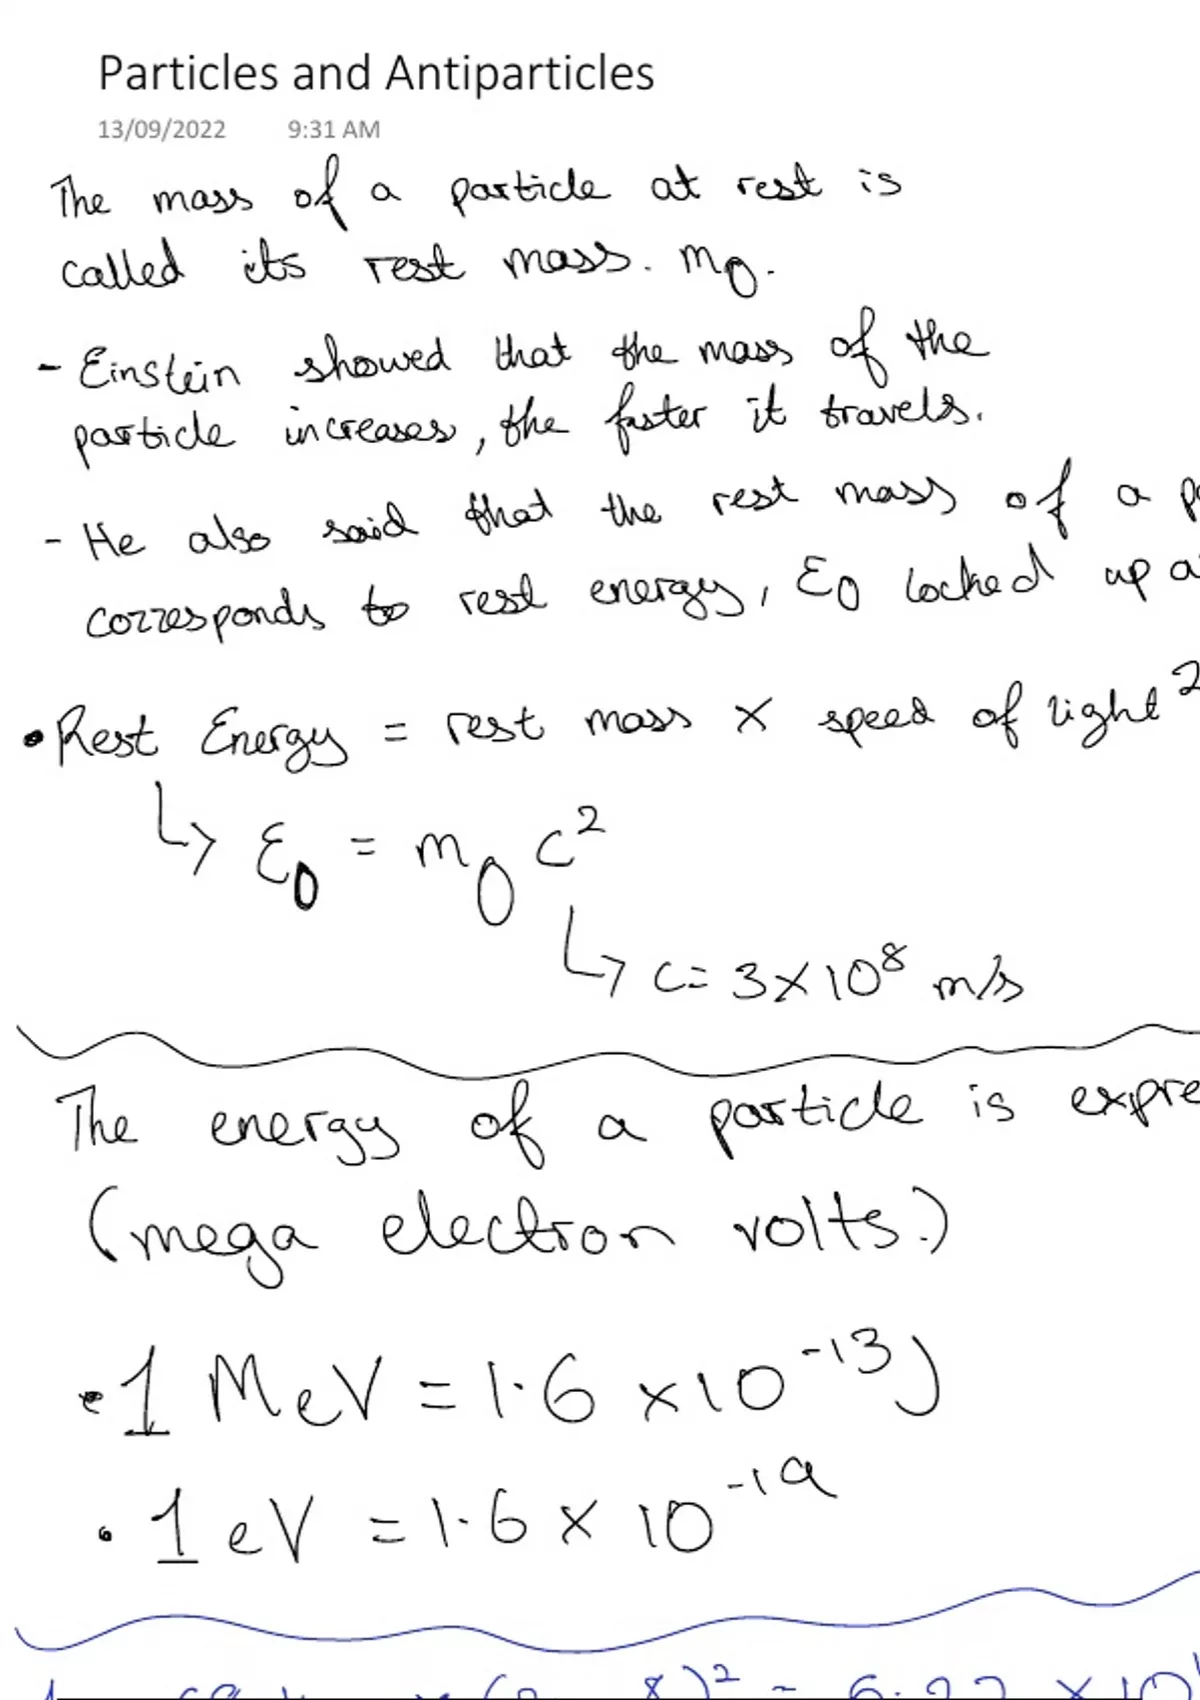 Particles and Antiparticles
13/09/2022 9:31 AM
The mass of a particle at rest is
called its rest mass. m₀.
- Einstein showed that the mass of the
particle increases, the faster it travels.
- He also said that the rest mass of a
corresponds to rest energy, E₀ locked up
• Rest Energy = rest mass × speed of light²
↳ E₀ = m₀ c²
↳ c = 3×10⁸ m/s
The energy of a particle is expre
(mega electron volts.)
• 1 MeV = 1.6 ×10⁻¹³ J
• 1 eV = 1.6 × 10⁻¹⁹